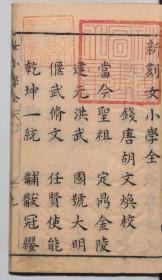 新刻女小學全
錢唐胡文煥校
當今聖祖　定鼎金陵
建元洪武　國號大明
偃武脩文　任賢使能
乾坤一統　黼黻冠纓
女小學全